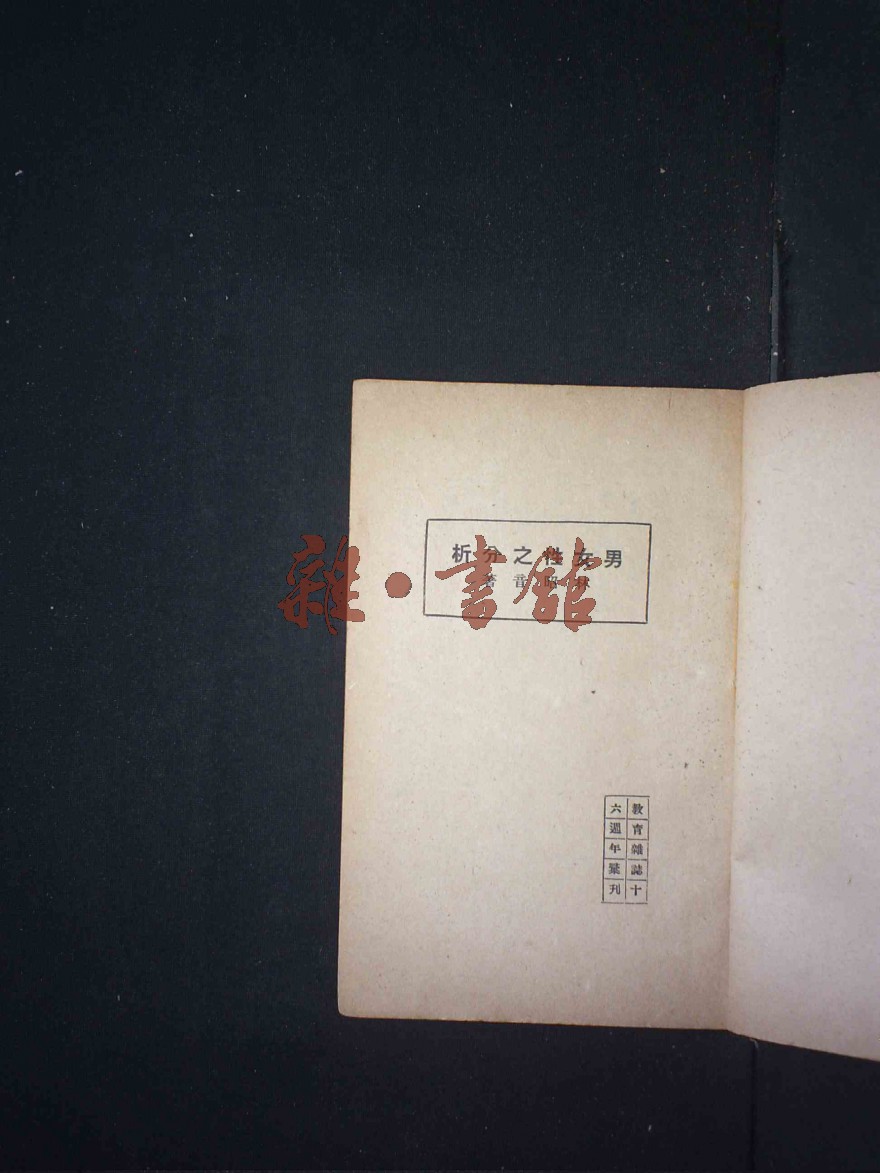 男女性之分析
昭音著
教育雜誌十
六週年彙刊
雜·書館